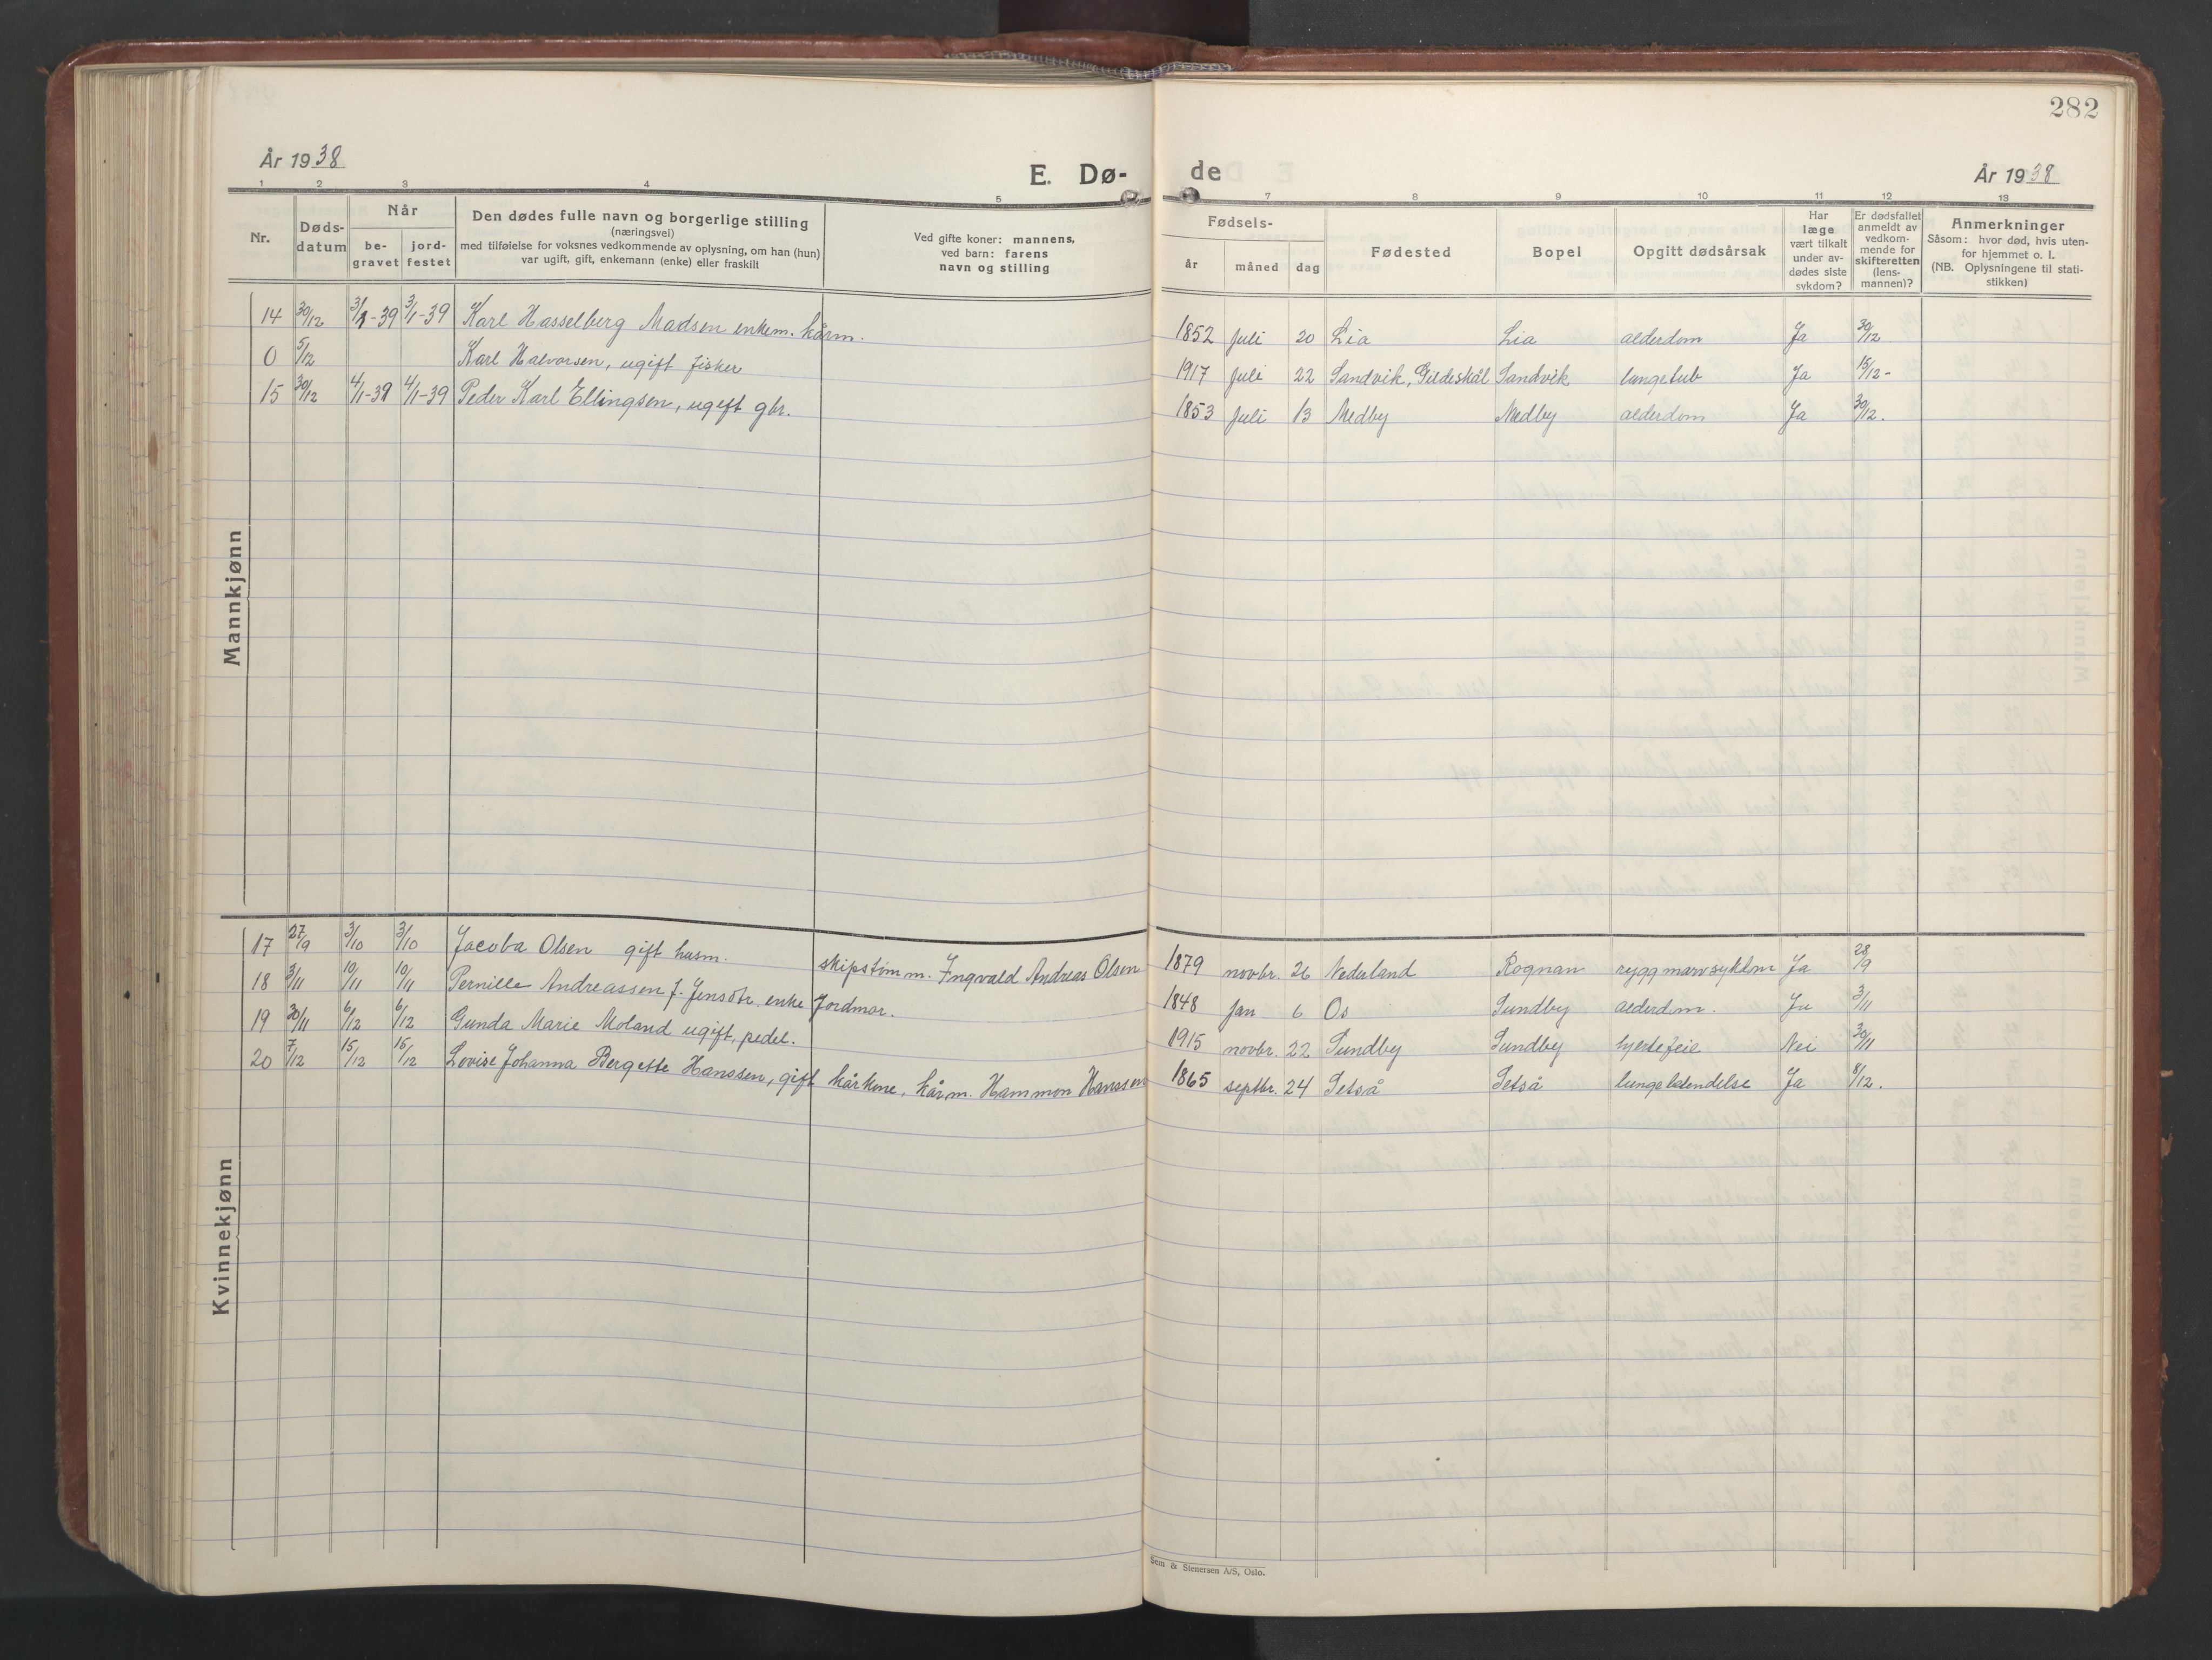 282
År 1938
E. Dø-
de
År 1938
1 2 3 4 5 7 8 9 10 11 12 13
Nr.
Døds-
datum
Når
be-
gravet
jord-
festet
Den dødes fulle navn og borgerlige stilling
(næringsvei)
med tilføielse for voksnes vedkommende av oplysning, om han (hun)
var ugift, gift, enkemann (enke) eller fraskilt
Ved gifte koner: mannens,
ved barn: farens
navn og stilling
Fødsels-
år måned dag
Fødested
Bopel
Opgitt dødsårsak
Har
læge
vært tilkalt
under av-
dødes siste
sykdom?
Er dødsfallet
anmeldt av
vedkom-
mende for
skifteretten
(lens-
mannen)?
Anmerkninger
Såsom: hvor død, hvis uten-
for hjemmet o. l.
(NB. Oplysningene til stati-
stikken)
Mannkjønn
14 30/12 3/1-39 3/1-39 Karl Hasselberg Madsen enkem. kårm. 1852 juli 20 Lia Lia alderdom Ja 30/12
0 5/12 Karl Halvorsen, ugift fisker 1917 juli 22 Sandvik, Gildeskål Sandvik lungetub Ja 15/12-
15 30/12 4/1-39 4/1-39 Peder Karl Ellingsen, ugift gbr. 1853 juli 13 Medby Medby alderdom Ja 30/12.
Kvinnekjønn
17 27/9 3/10 3/10 Jacoba Olsen gift husm. skipstømm. Ingvald Andreas Olsen 1879 novbr. 26 Nederland Rognan ryggmarvsykdom Ja 28/9
18 3/11 10/11 10/11 Pernille Andreassen f. Jensdtr. enke Jordmor. 1848 jan 6 Os Sundby alderdom. Ja 3/11
19 30/11 6/12 6/12 Gunda Marie Moland ugift, pedel. 1915 novbr. 22 Sundby Sundby hjertefeil Nei 30/11
20 7/12 15/12 15/12 Lovise Johanna Bergette Hanssen, gift kårkone, kårm. Hammon Hanssen 1865 septbr. 24 Setså Setså lungebetendelse Ja 8/12.
Sem & Stenersen A/S, Oslo.